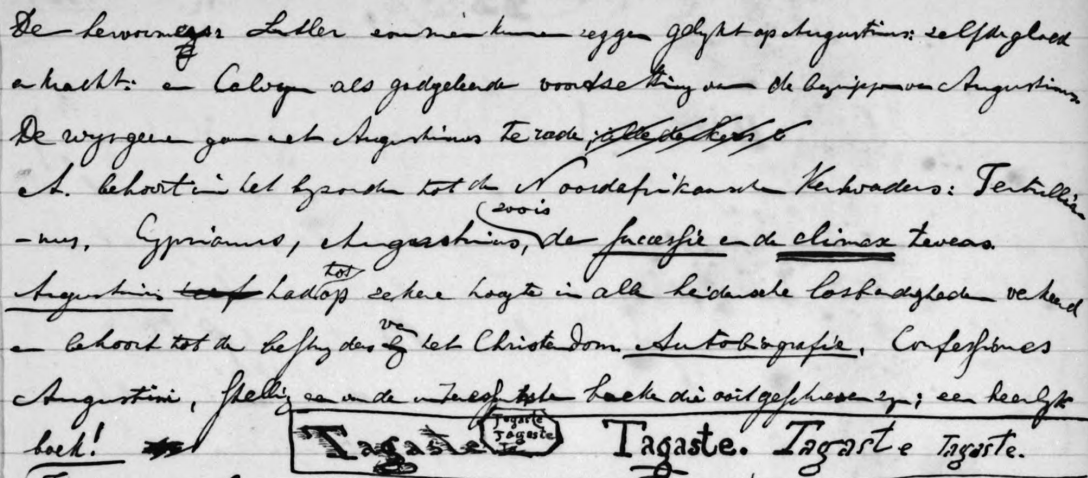 De hervormers Luther zou men kunnen zeggen gelykt op Augustinus: zelfde gloed
en kracht: en Calvyn als godgeleerde voortzetting van de begrippen van Augustinus
De wysgeeren gaan met Augustinus te rade;
A. behoort in het byzonder tot de Noordafrikaansche Kerkvaders: Tertullia-
-nus, Cyprianus, Augustinus, zoo is de successie en de climax tevens.
Augustinus had tot op zekere hoogte in alle heidensche losbandigheden verkeerd
en behoort tot de bestryders van het Christendom. Autobiografie. Confessiones
Augustini, stellig een van de interessantste boeken die ooit geschreven zyn; een heerlyk
boek! Tagaste Tagaste Tagaste Ta Tagaste. Tagaste Tagaste.